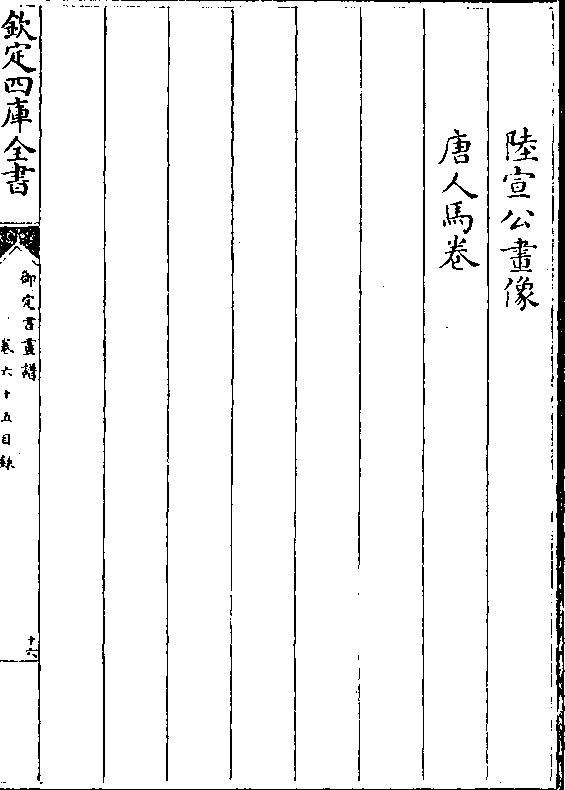 陸宣公畫像
唐人馬卷
欽定四庫全書
御定書畫譜
卷六十五目錄
十六